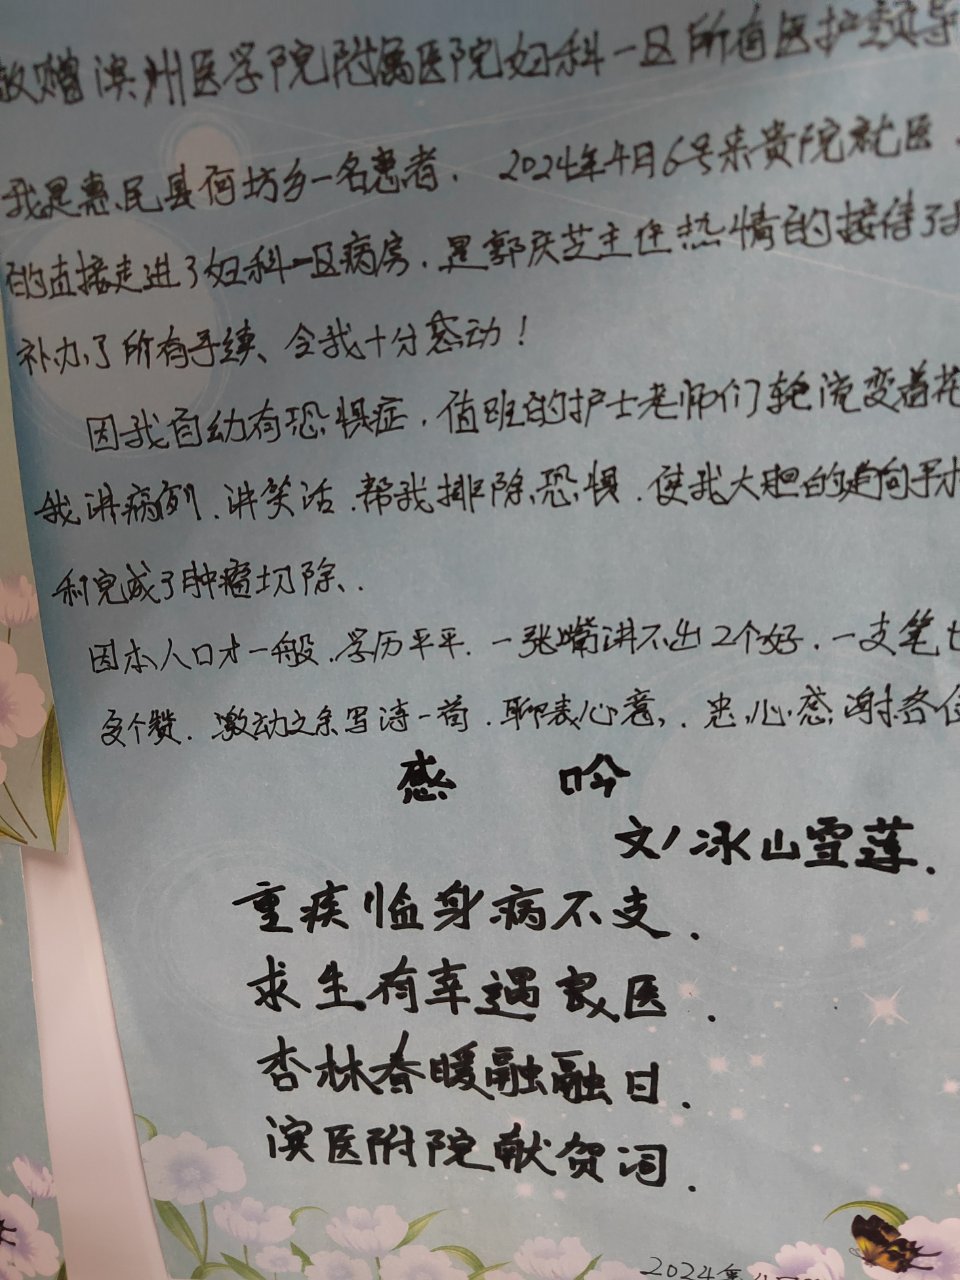 敬赠滨州医学院附属医院妇科一区所有医护领导
我是惠民县何坊乡一名患者. 2024年4月6号来贵院就医
的直接走进了妇科一区病房. 是郭庆芝主任热情的接待了我
补办了所有手续、令我十分感动！
因我自幼有恐惧症. 值班的护士老师们轮流变着花
我讲病例. 讲笑话. 帮我排除恐惧. 使我大胆的走向手术
利完成了肿瘤切除.
因本人口才一般. 学历平平. 一张嘴讲不出2个好. 一支笔也
多个赞. 激动之余写诗一首. 聊表心意. 忠心感谢各位
感 吟
文/冰山雪莲.
重疾临身病不支.
求生有幸遇良医.
杏林春暖融融日.
滨医附院献贺词.
2024年